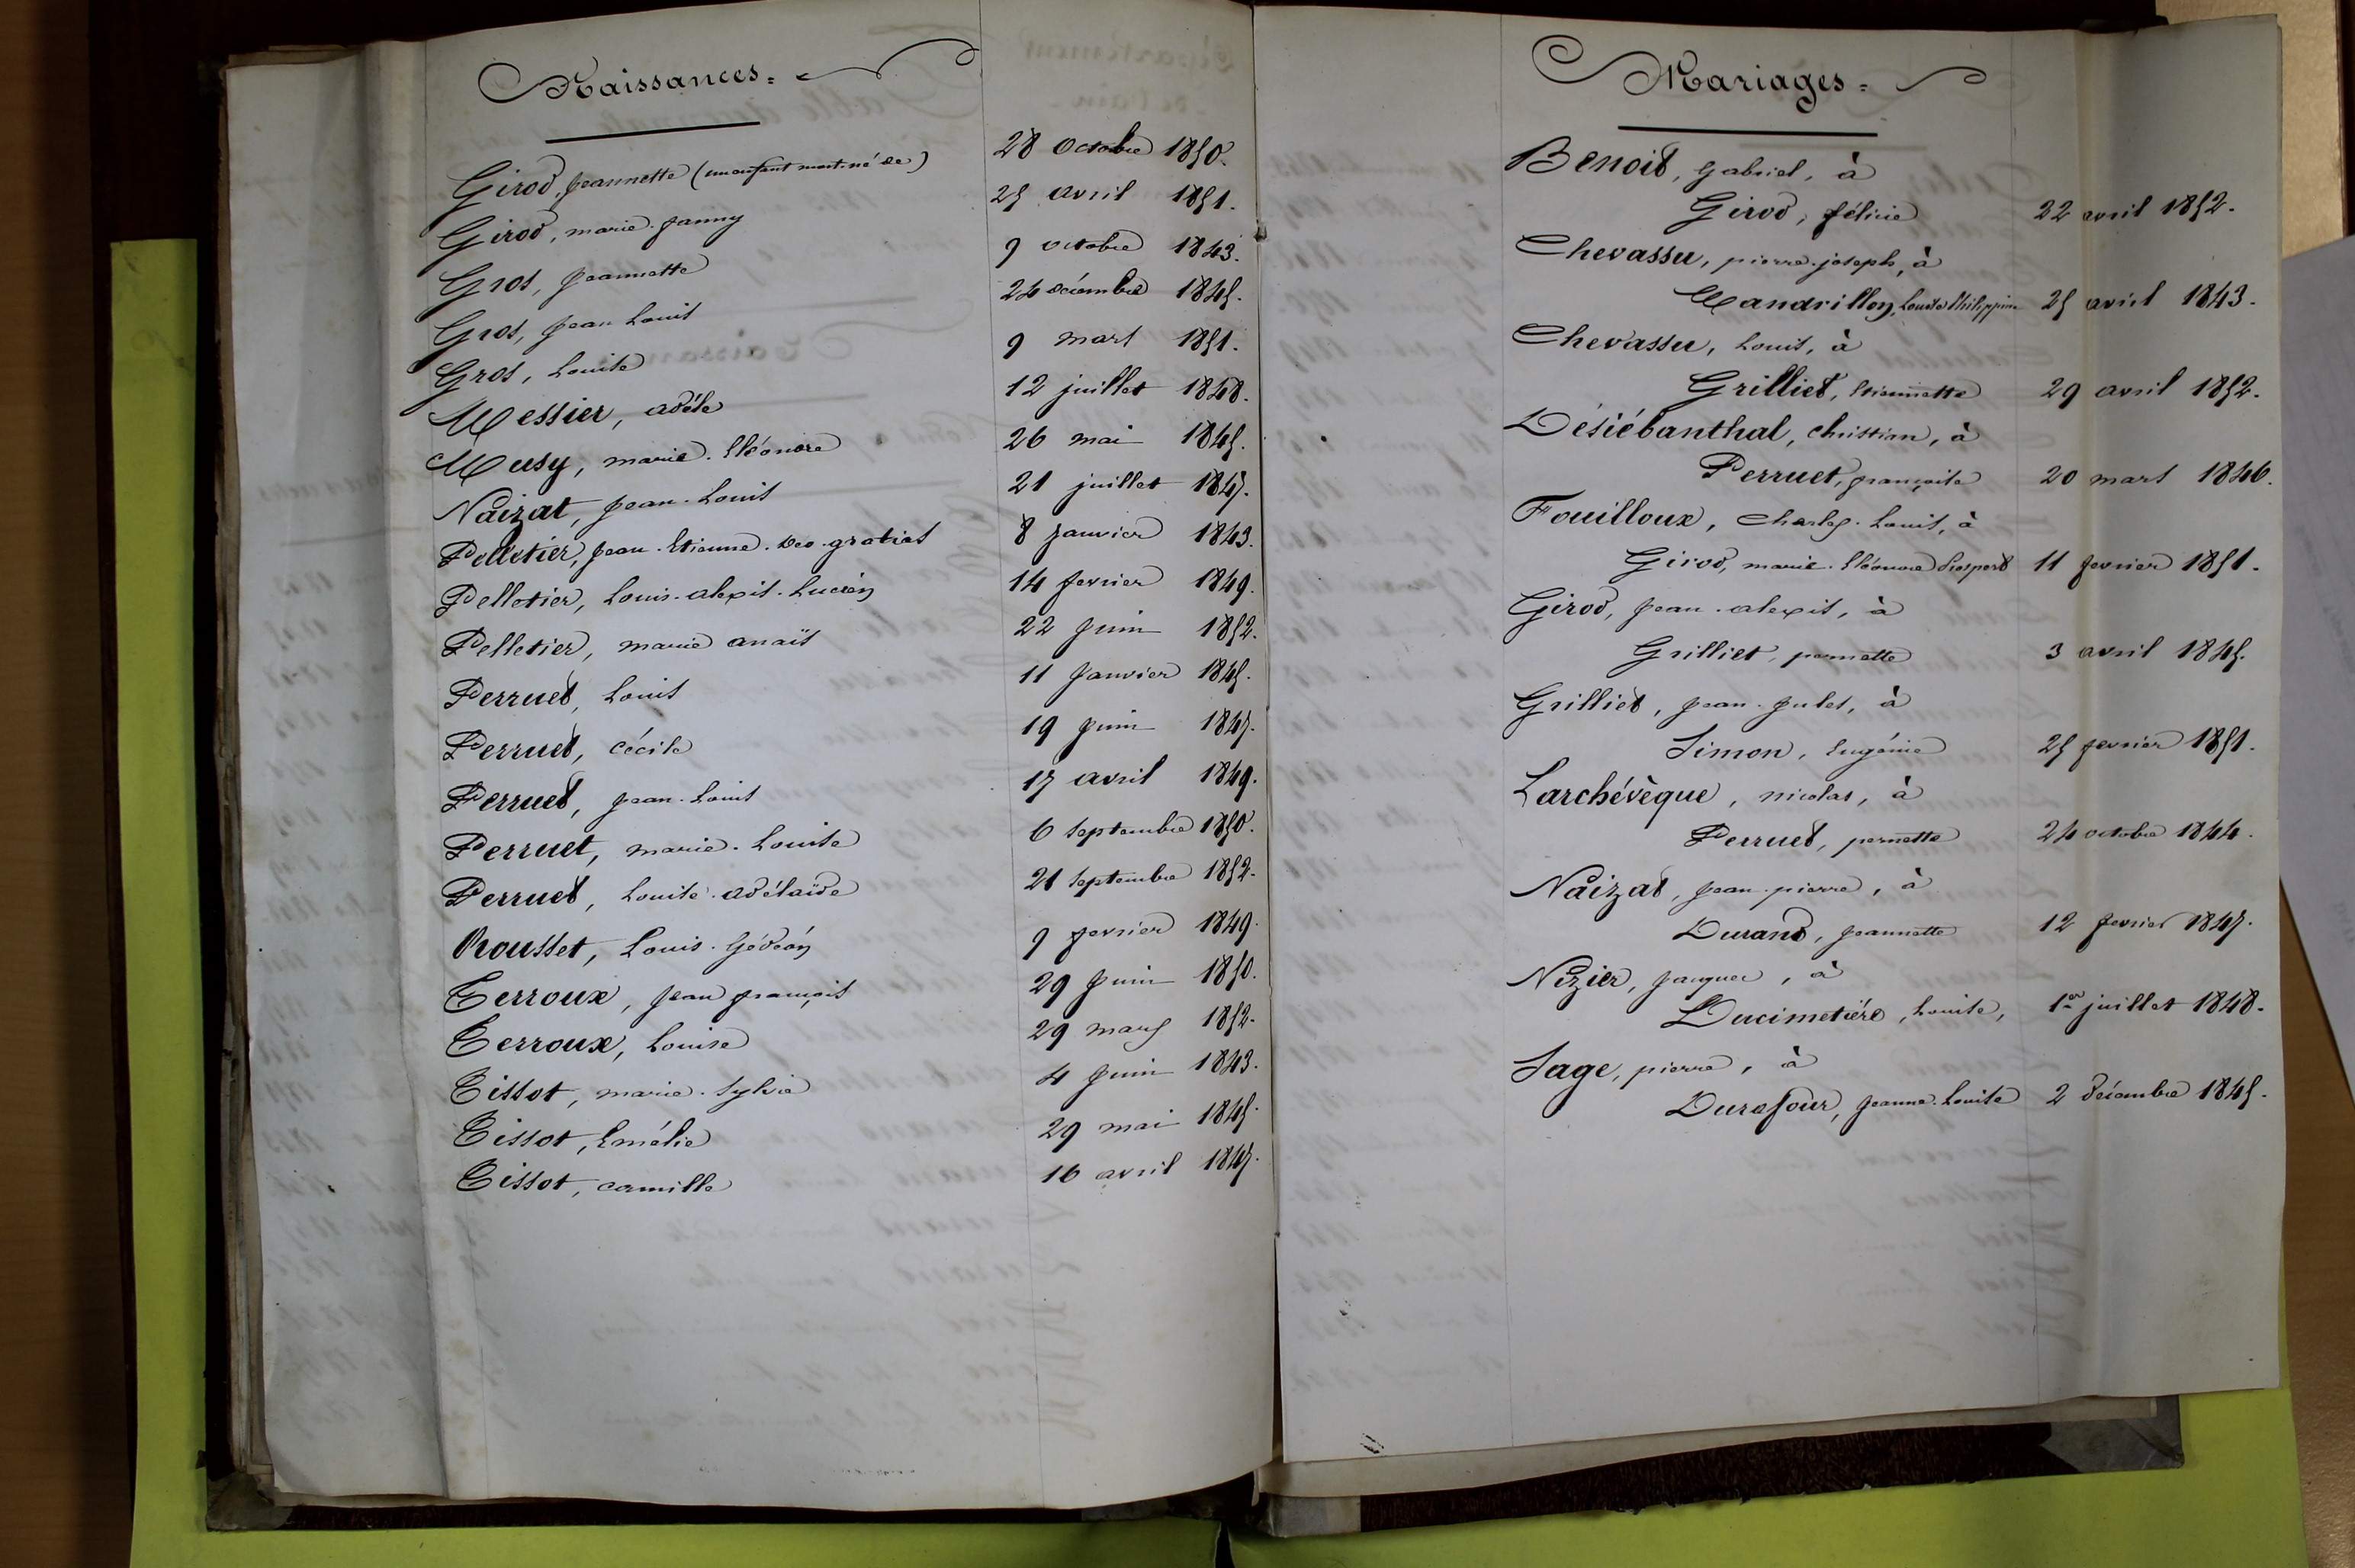 Naissances.
Girod, Jeannette (un enfant mort-né de) 28 Octobre 1850.
Girod, marie-fanny 25 avril 1851.
Gros, Jeannette 9 octobre 1843.
Gros, Jean Louis 24 décembre 1845.
Gros, Louise 9 mars 1851.
Messier, adèle 12 juillet 1848.
Musy, marie-Eléonore 26 mai 1845.
Naizat, Jean-Louis 21 juillet 1847.
Pelletier, Jean-Etienne-Deo-gratias 8 Janvier 1843.
Pelletier, Louis-alexis-Lucien 14 fevrier 1849.
Pelletier, marie anaïs 22 Juin 1852.
Perruet, Louis 11 Janvier 1845.
Perruet, cécile 19 Juin 1847.
Perruet, Jean-Louis 17 avril 1849.
Perruet, marie-Louise 6 Septembre 1850.
Perruet, Louise-adélaïde 21 Septembre 1852.
Rousset, Louis-Gédéon 9 fevrier 1849.
Terroux, Jean françois 29 Juin 1850.
Terroux, Louise 29 mars 1852.
Tissot, marie-Sylvie 4 Juin 1843.
Tissot, Emélie 29 mai 1845.
Tissot, camille 16 avril 1847.
Mariages.
Benoit, Gabriel, à
Girod, félicie 22 avril 1852.
Chevassu, pierre-joseph, à
Mandrillon, Louise Philippine 25 avril 1843.
Chevassu, Louis, à
Grilliet, Etiennette 29 avril 1852.
Désiébanthal, christian, à
Perruet, françoise 20 mars 1846.
Fouilloux, Charles-Louis, à
Girod, marie-Eléonore Prospert 11 fevrier 1851.
Girod, Jean-alexis, à
Grilliet, pernette 3 avril 1845.
Grilliet, Jean-Jules, à
Simon, Eugénie 25 fevrier 1851.
Larchévèque, nicolas, à
Perruet, pernette 24 octobre 1844.
Naizat, Jean-pierre, à
Durand, Jeannette 12 fevrier 1847.
Nizier, Jacques, à
Ducimetiére, Louise, 1er juillet 1848.
Sage, pierre, à
Durafour, Jeanne-Louise 2 décembre 1845.